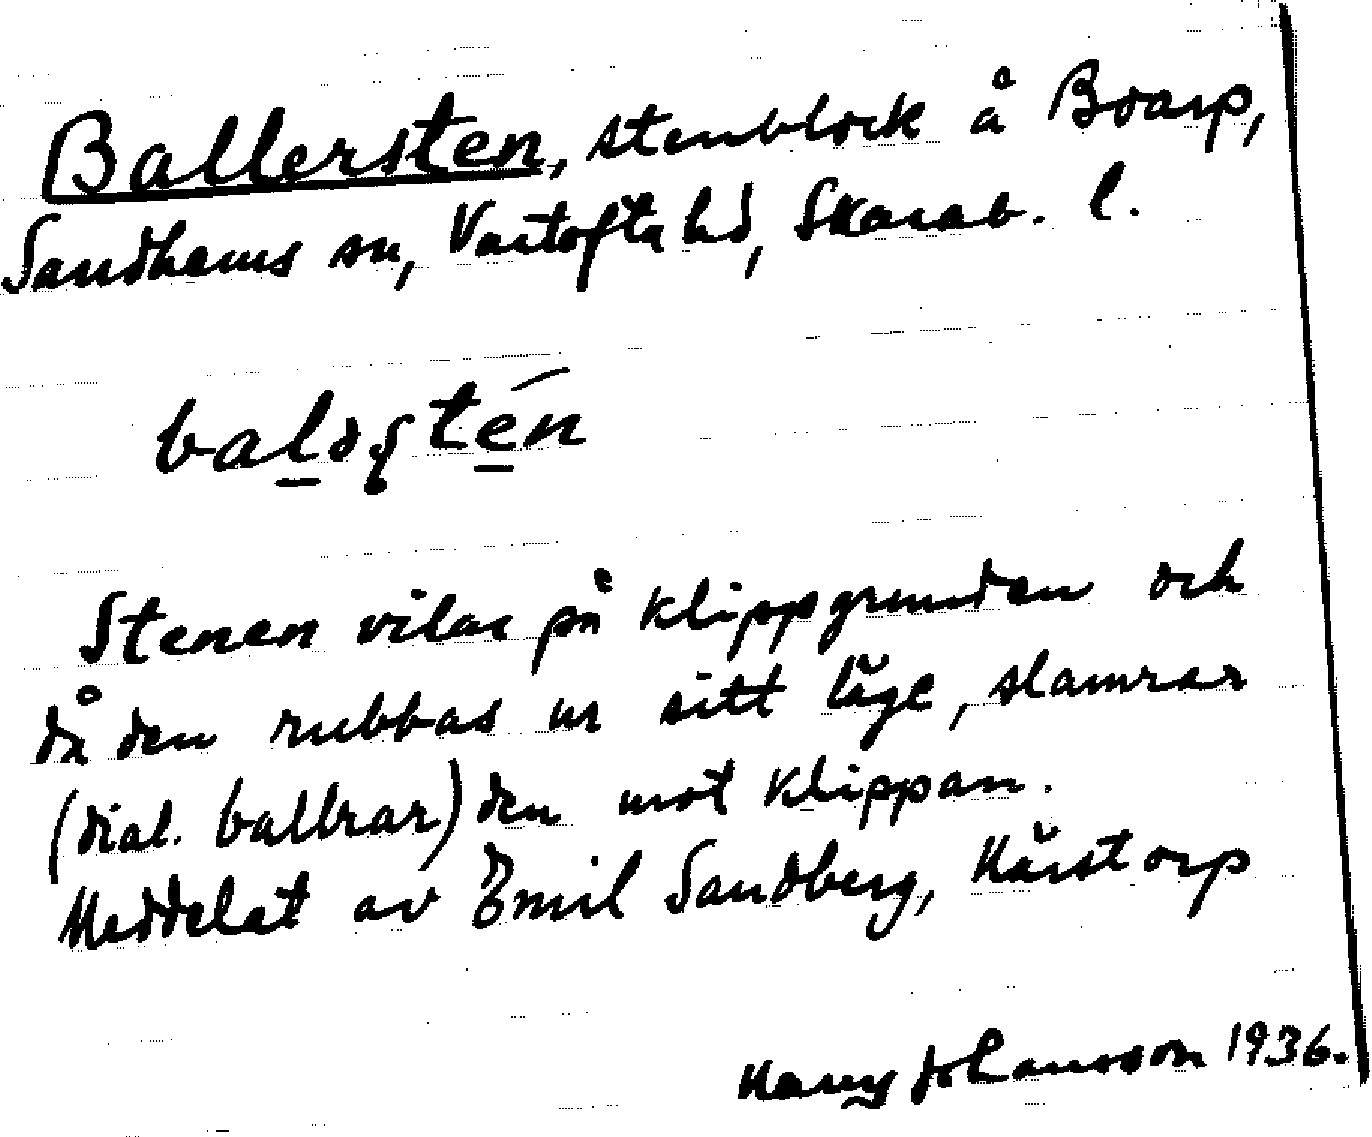 Ballersten, stenblock å Boarp,
Sandhems sn, Vartofta hd, Skarab. l.
Stenen vilar på klippgrunden och
då den rubbas ur sitt läge, slamrar
(dial. ballrar) den mot klippan.
Meddelat av Emil Sandberg, Kärstorp
Harry Johansson 1936.